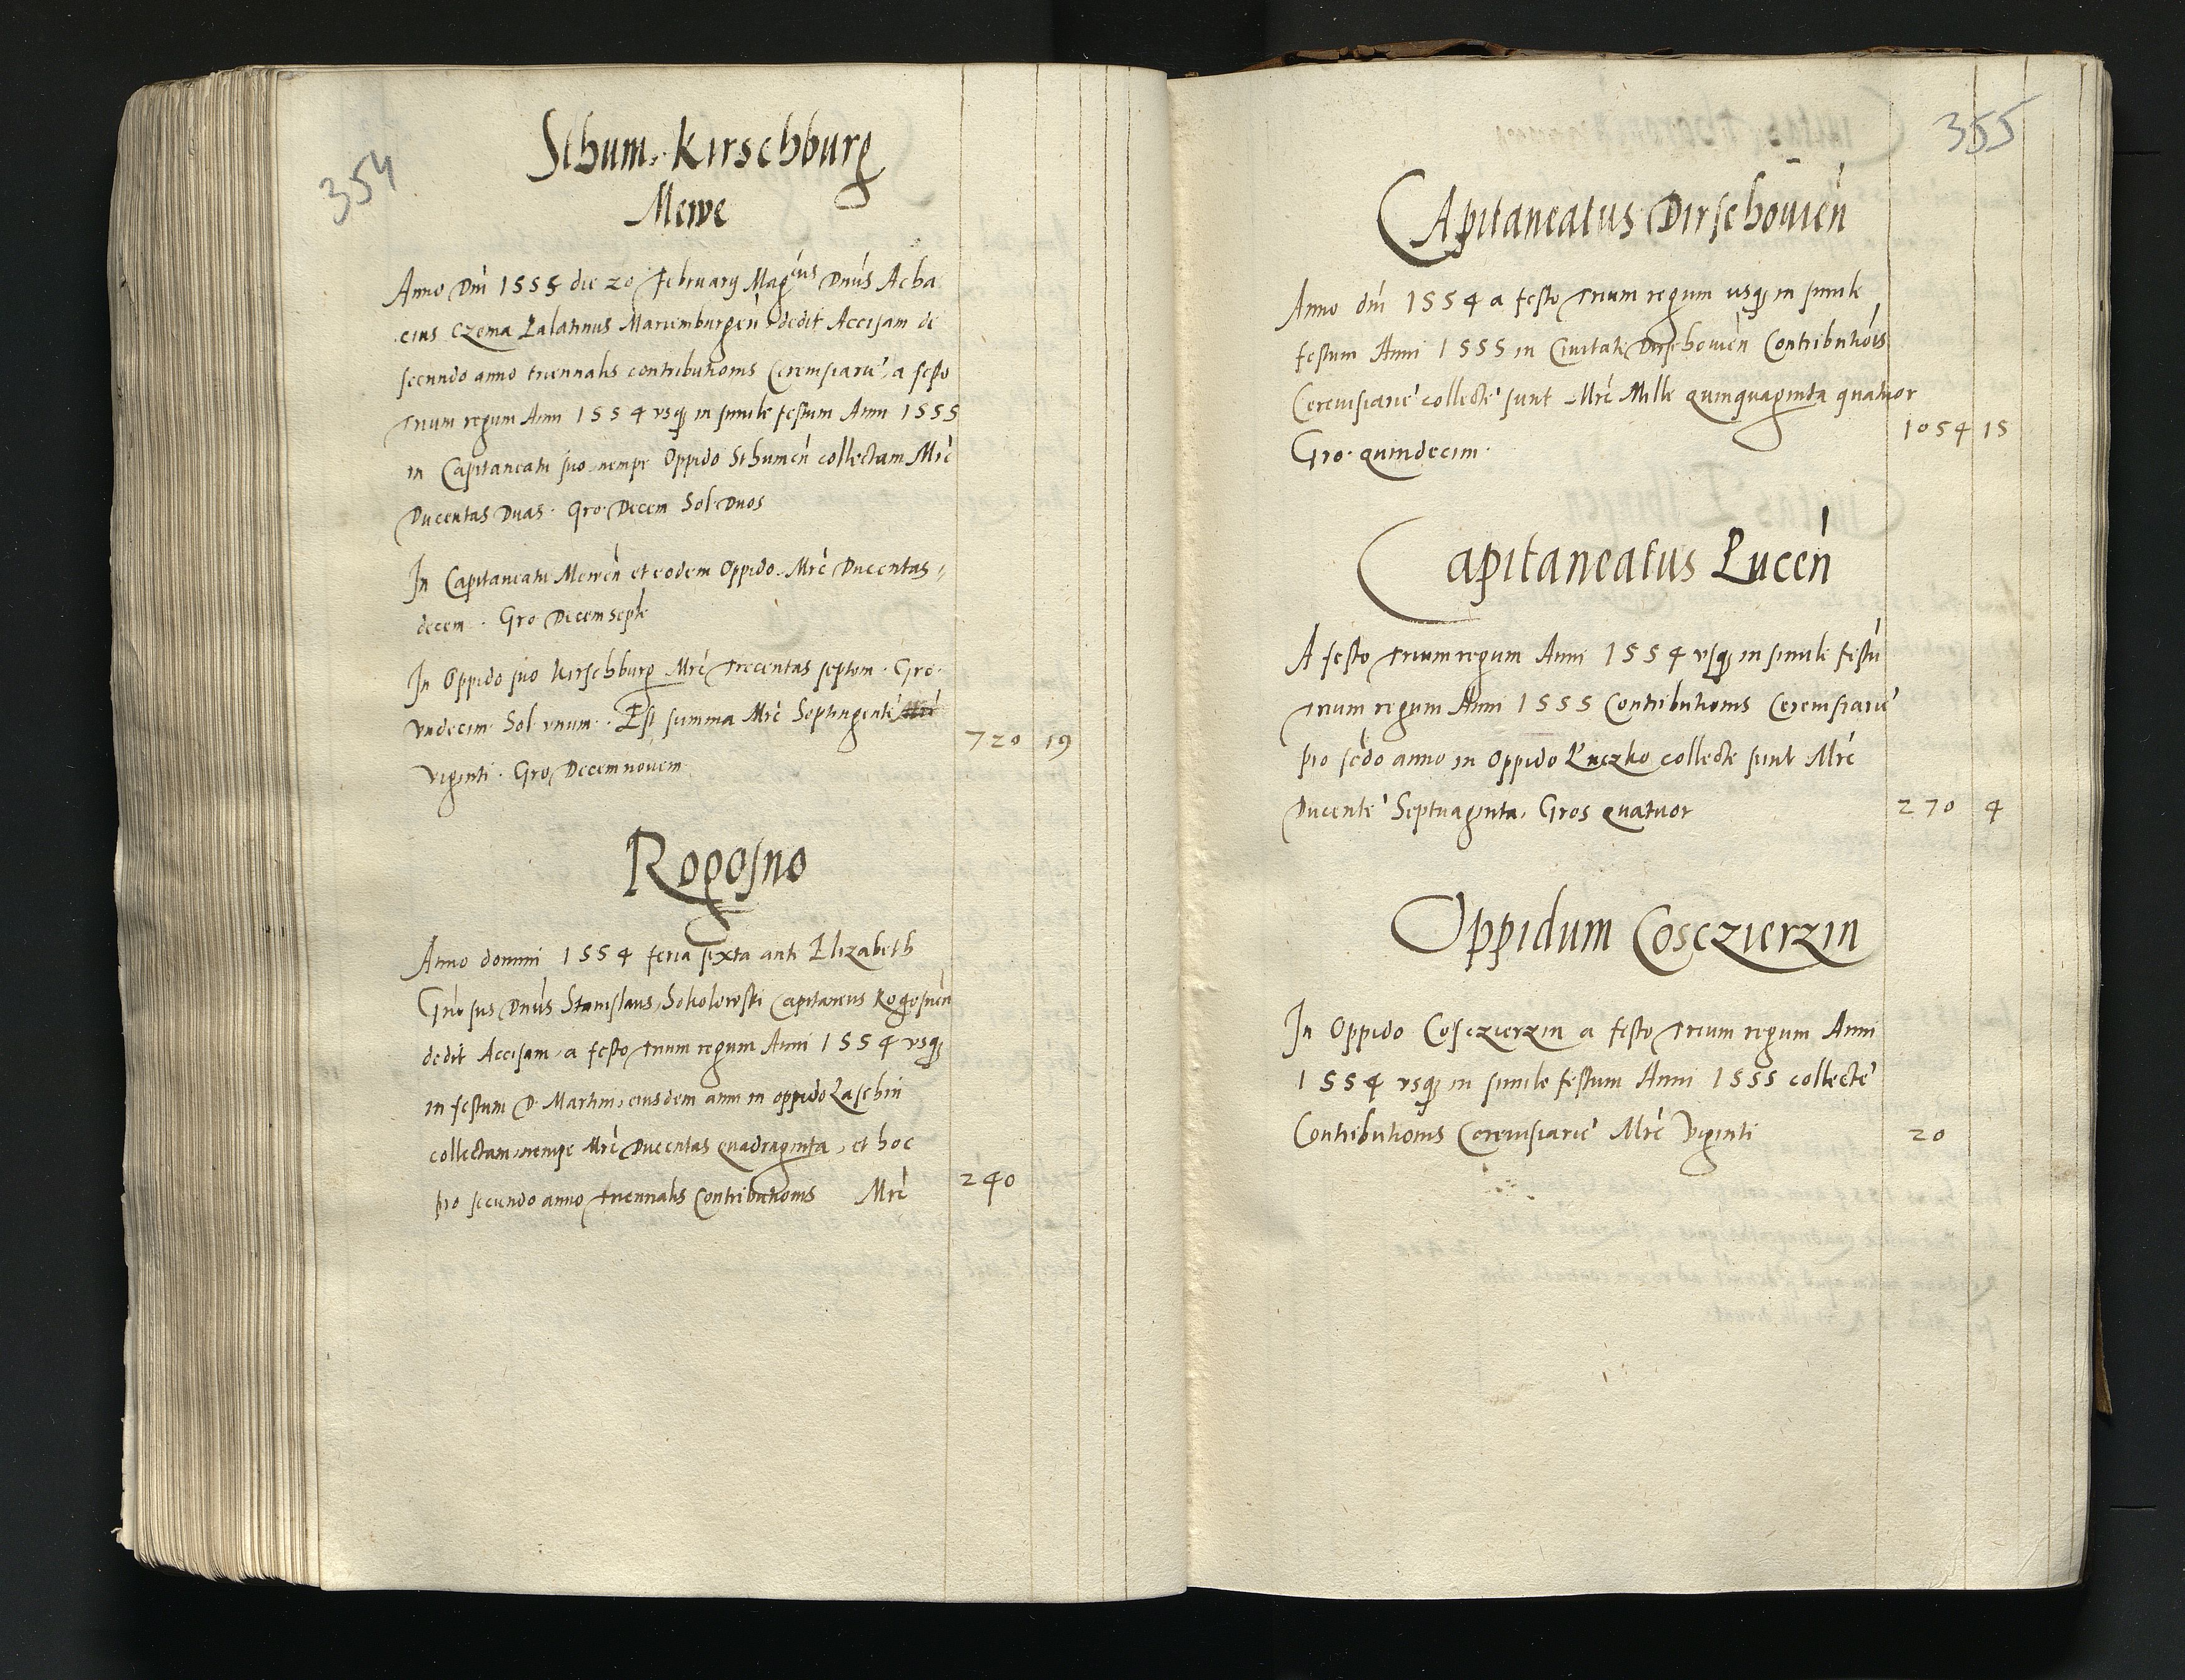 354
Sthum. Kirschburg
Mewe
Anno Dni 1555 die 20 february Magcus Dnus Acha
cius Czema Palatinus Mariemburgen dedit Accisam de
secundo anno triennalis contributionis Cereuisiarie a festo
Trium regum Anni 1554 vsq in simile festum Anni 1555
in Capitaneatu suo nempe Oppido Sthumen collectam Mrc
Ducentas Duas. Gro. Decem Sol. Duos
In Capitaneatu Mewen et eodem Oppido. Mrc Ducentas
decem. Gro Decem septe
In Oppido suo Kirschburg Mrc Trecentas septem. Gro.
vndecim Sol. vnum. Est summa Mrc Septingente
viginti. Gro. Decem nouem
720 19
Rogosno
Anno domini 1554 feria sexta ante Elizabeth
Gnosus Dnus Stanislaus Sokolowski Capitaneus Rogosnen
dedit Accisam a festo Trium regum Anni 1554 vsq
in festum D. Martini eiusdem anni in oppido Laschin
collectam nempe Mrc Ducentas quadraginta, et hoc
pro secundo anno triennalis Contributionis Mrc
240
355
Capitaneatus Dirschouien
Anno dni 1554 a festo Trium regum usq in simile
festum Anni 1555 in Ciuitate Dirschouien Contributiois
Cereuisiarie collecte sunt Mrc Mille quinquaginta quatuor
Gro. quindecim.
1054 15
Capitaneatus Lucen
A festo Trium regum Anni 1554 vsq in simile festu
Trium regum Anni 1555 Contributionis Cereuisiarie
pro scdo anno in Oppido Luczko collecte sunt Mrc
Ducente Septuaginta. Gros quatuor
270 4
Oppidum Cosczierzin
In Oppido Cosczierzin a festo Trium regum Anni
1554 vsq in simile festum Anni 1555 collecte
Contributionis Cereuisiarie Mrc Viginti
20